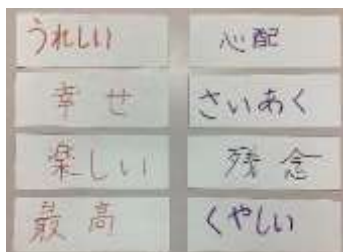 うれしい
幸せ
楽しい
最高
心配
さいあく
残念
くやしい